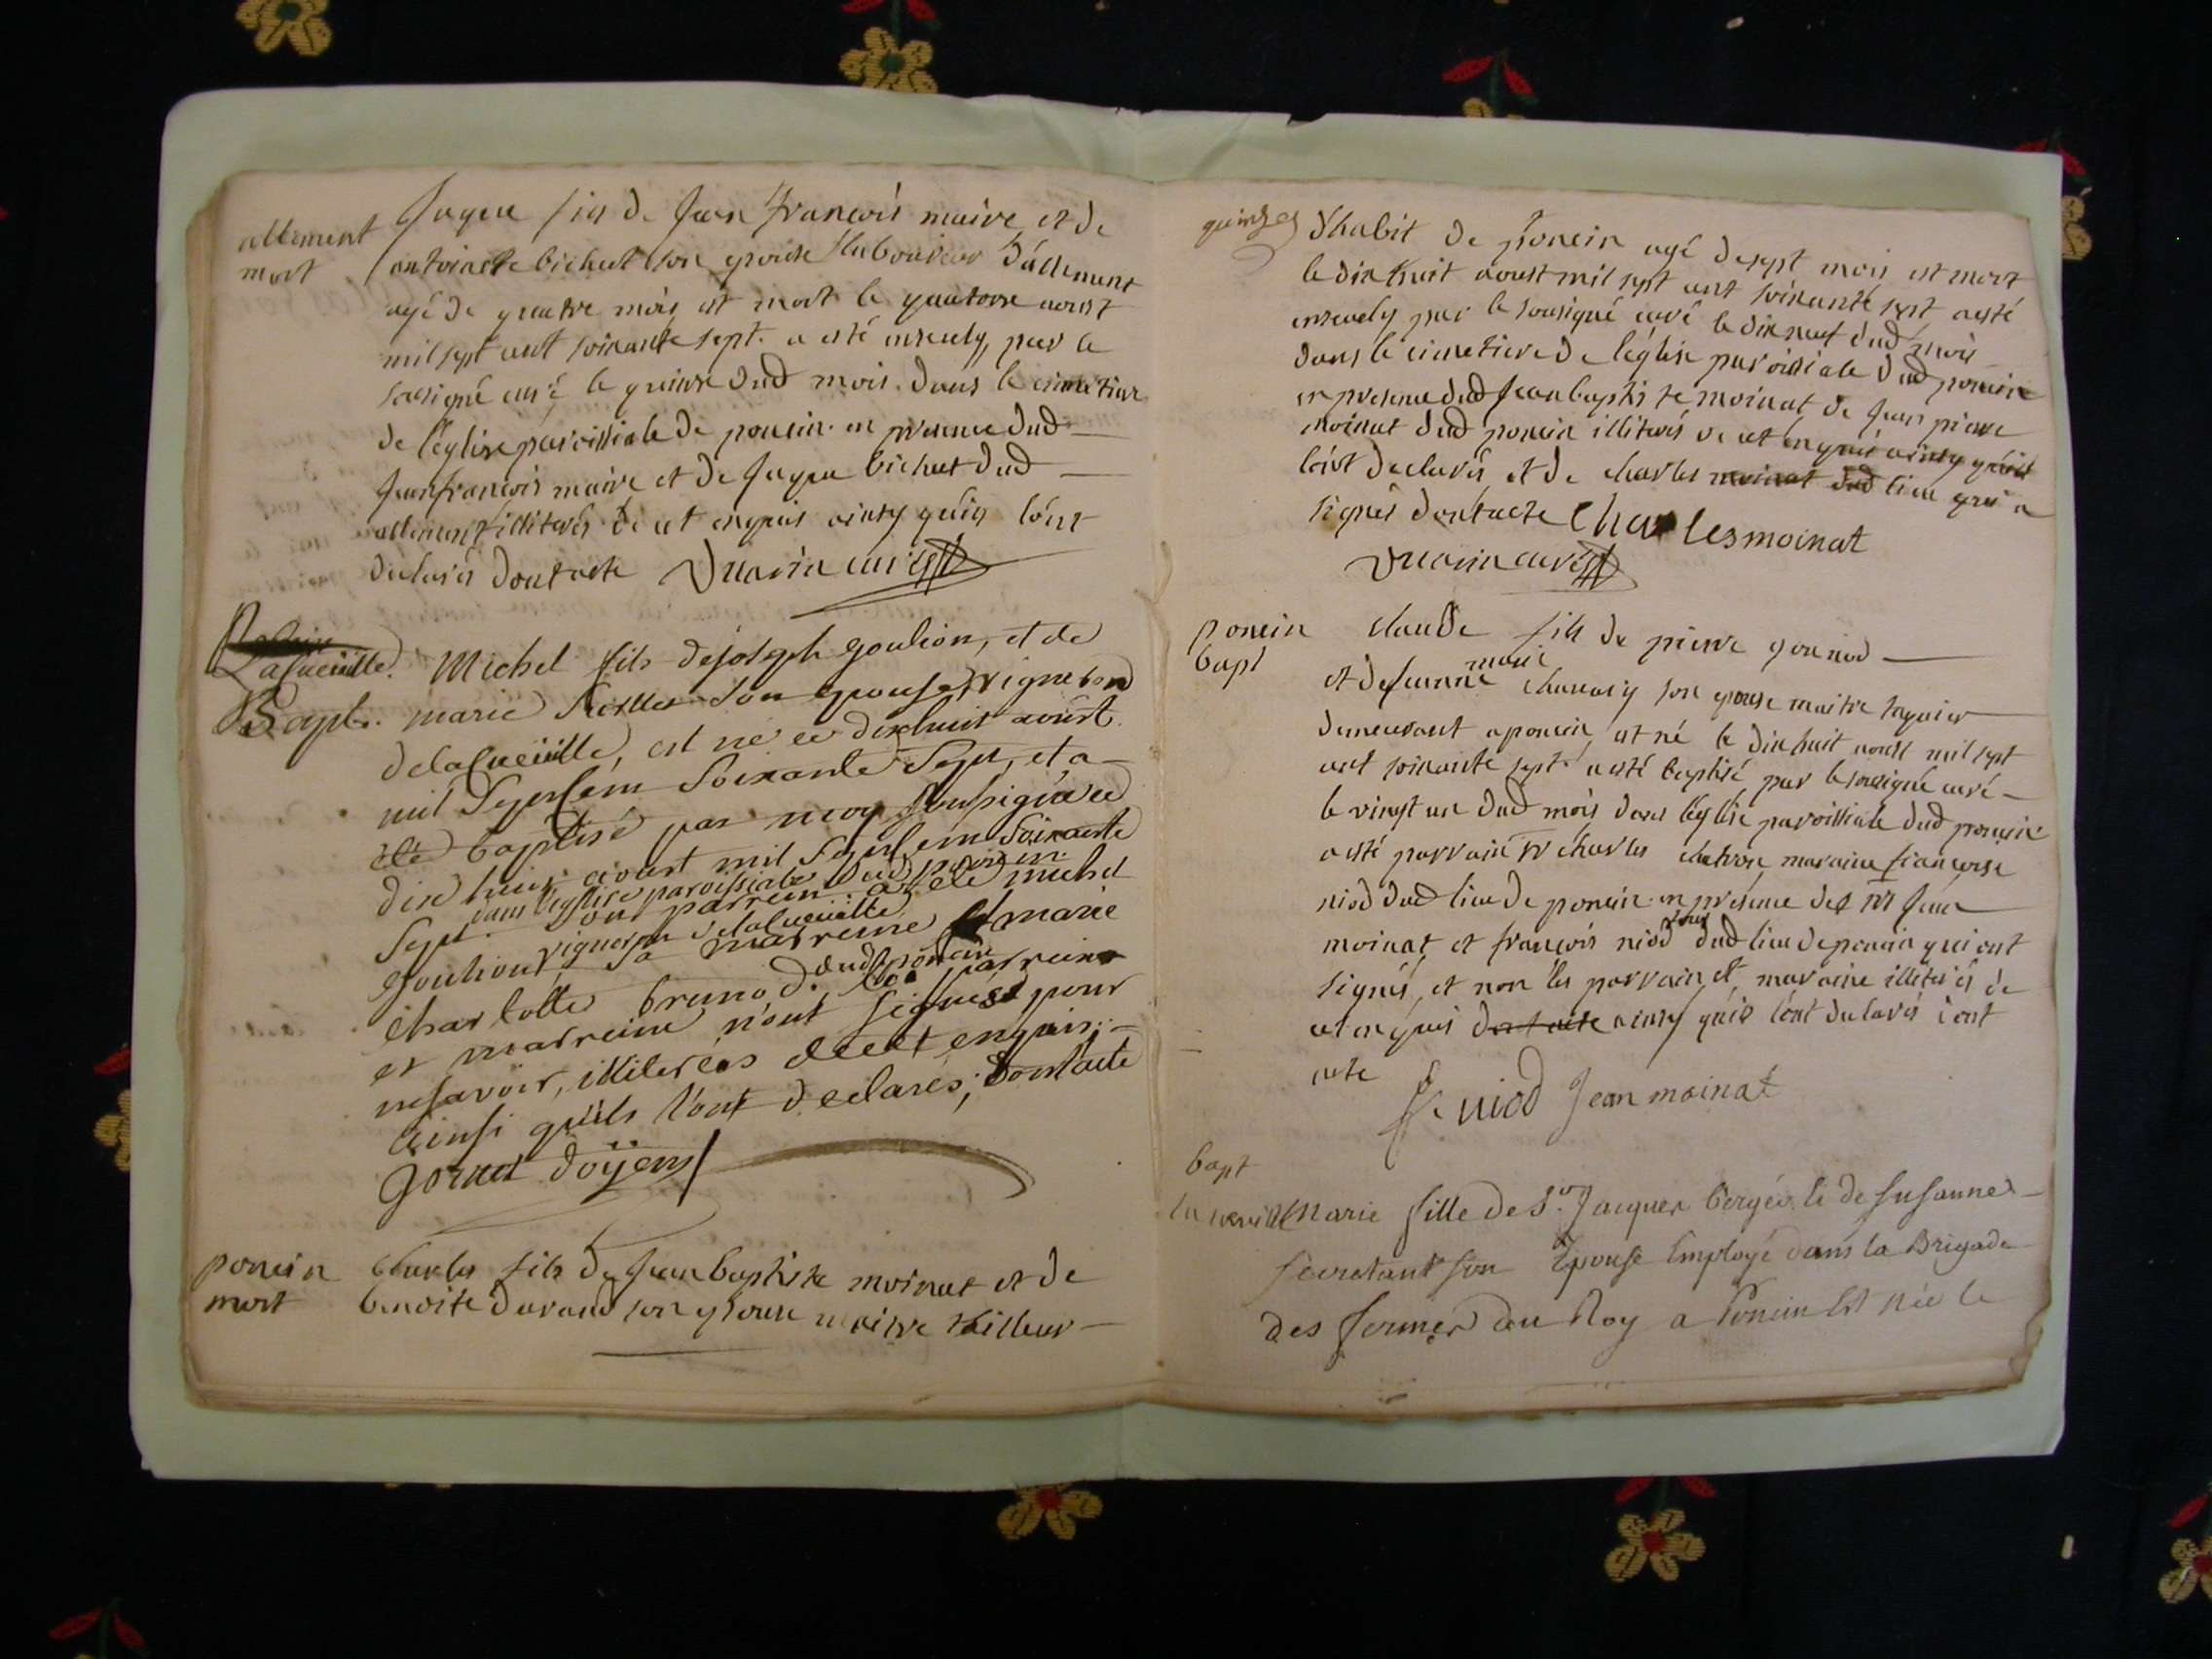 allement
mort
Jaque fils de Jean françois maire et de
antoinette bichat son epouse laboureur d'allement
agé de quatre mois est mort le quatorse aoust
mil sept cent soixante sept. a esté enseuely, par le
sousigné curé le quinse dud mois dans le cimetiere
de l'église paroissiale de poncin en presence dud
Jeanfrancois maire et de Jaque bichat dud
allement illiterés de ce enquis ainsy quils lont
declarés dont acte Duarin curé
Lacueüille.
Bapt.
Michel fils de joseph goulion, et de
marie son epouse, vigneron
delacueüille, est né ce dixhuit aoüst
mil Septcem Soixante Sept, et a
été baptisé par moy soussigné ce
dix huit aoust mil Septcem Soixante
dans l'eglise paroissiale dud poncin
Sept. son parrein a été michel
vigneron delacueüille
goulion sa marreine et marie
dudt poncin
charlotte brunod. les parreins
et marreine n'ont signés pour
ne savoir, illiterés de ce enquis;
ainsi quils l'ont declarés; dont acte
gornet doÿen
poncin
mort
charles fils de Jean baptiste moinat et de
benoite durand son epouse maitre tailleur
quinse
d'habit de poncin agé de sept mois est mort
le dix huit aoust mil sept cent soixante sept a esté
enseuely par le sousigné curé le dix neuf dud mois
dans le cimetiere de l'église paroissiale dud poncin
en presence dud Jean baptiste moinat de Jean pierre
moinat dud poncin illiterés de ce enquis ainsy quils
lont declarés et de charles moinat dud lieu qui a
signés dont acte Charles moinat
Duarin curé
poncin
bapt
claude fils de pierre gounod
marie
et de Jeanne chanavy son epouse maitre
demeurant a poncin est né le dix huit aoust mil sept
cent soixante sept a esté baptisé par le sousigné curé
le vingt un dud mois dans l'église paroissiale dud poncin
a esté parrain sr charles maraine francoise
niod dud lieu de poncin en presence des srs Jean
tous
moinat et francois niod dud lieu de poncin qui ont
signés, et non les parrain et maraine illiterés de
ce enquis dont acte ainsy quils lont declarés dont
acte
f. niod Jean moinat
bapt
la cueuille
Marie fille de Sr. Jacques Bergér & de Susanne
Secretant son Epouse Employé dans la Brigade
des fermes du Roy a Poncin Est née le